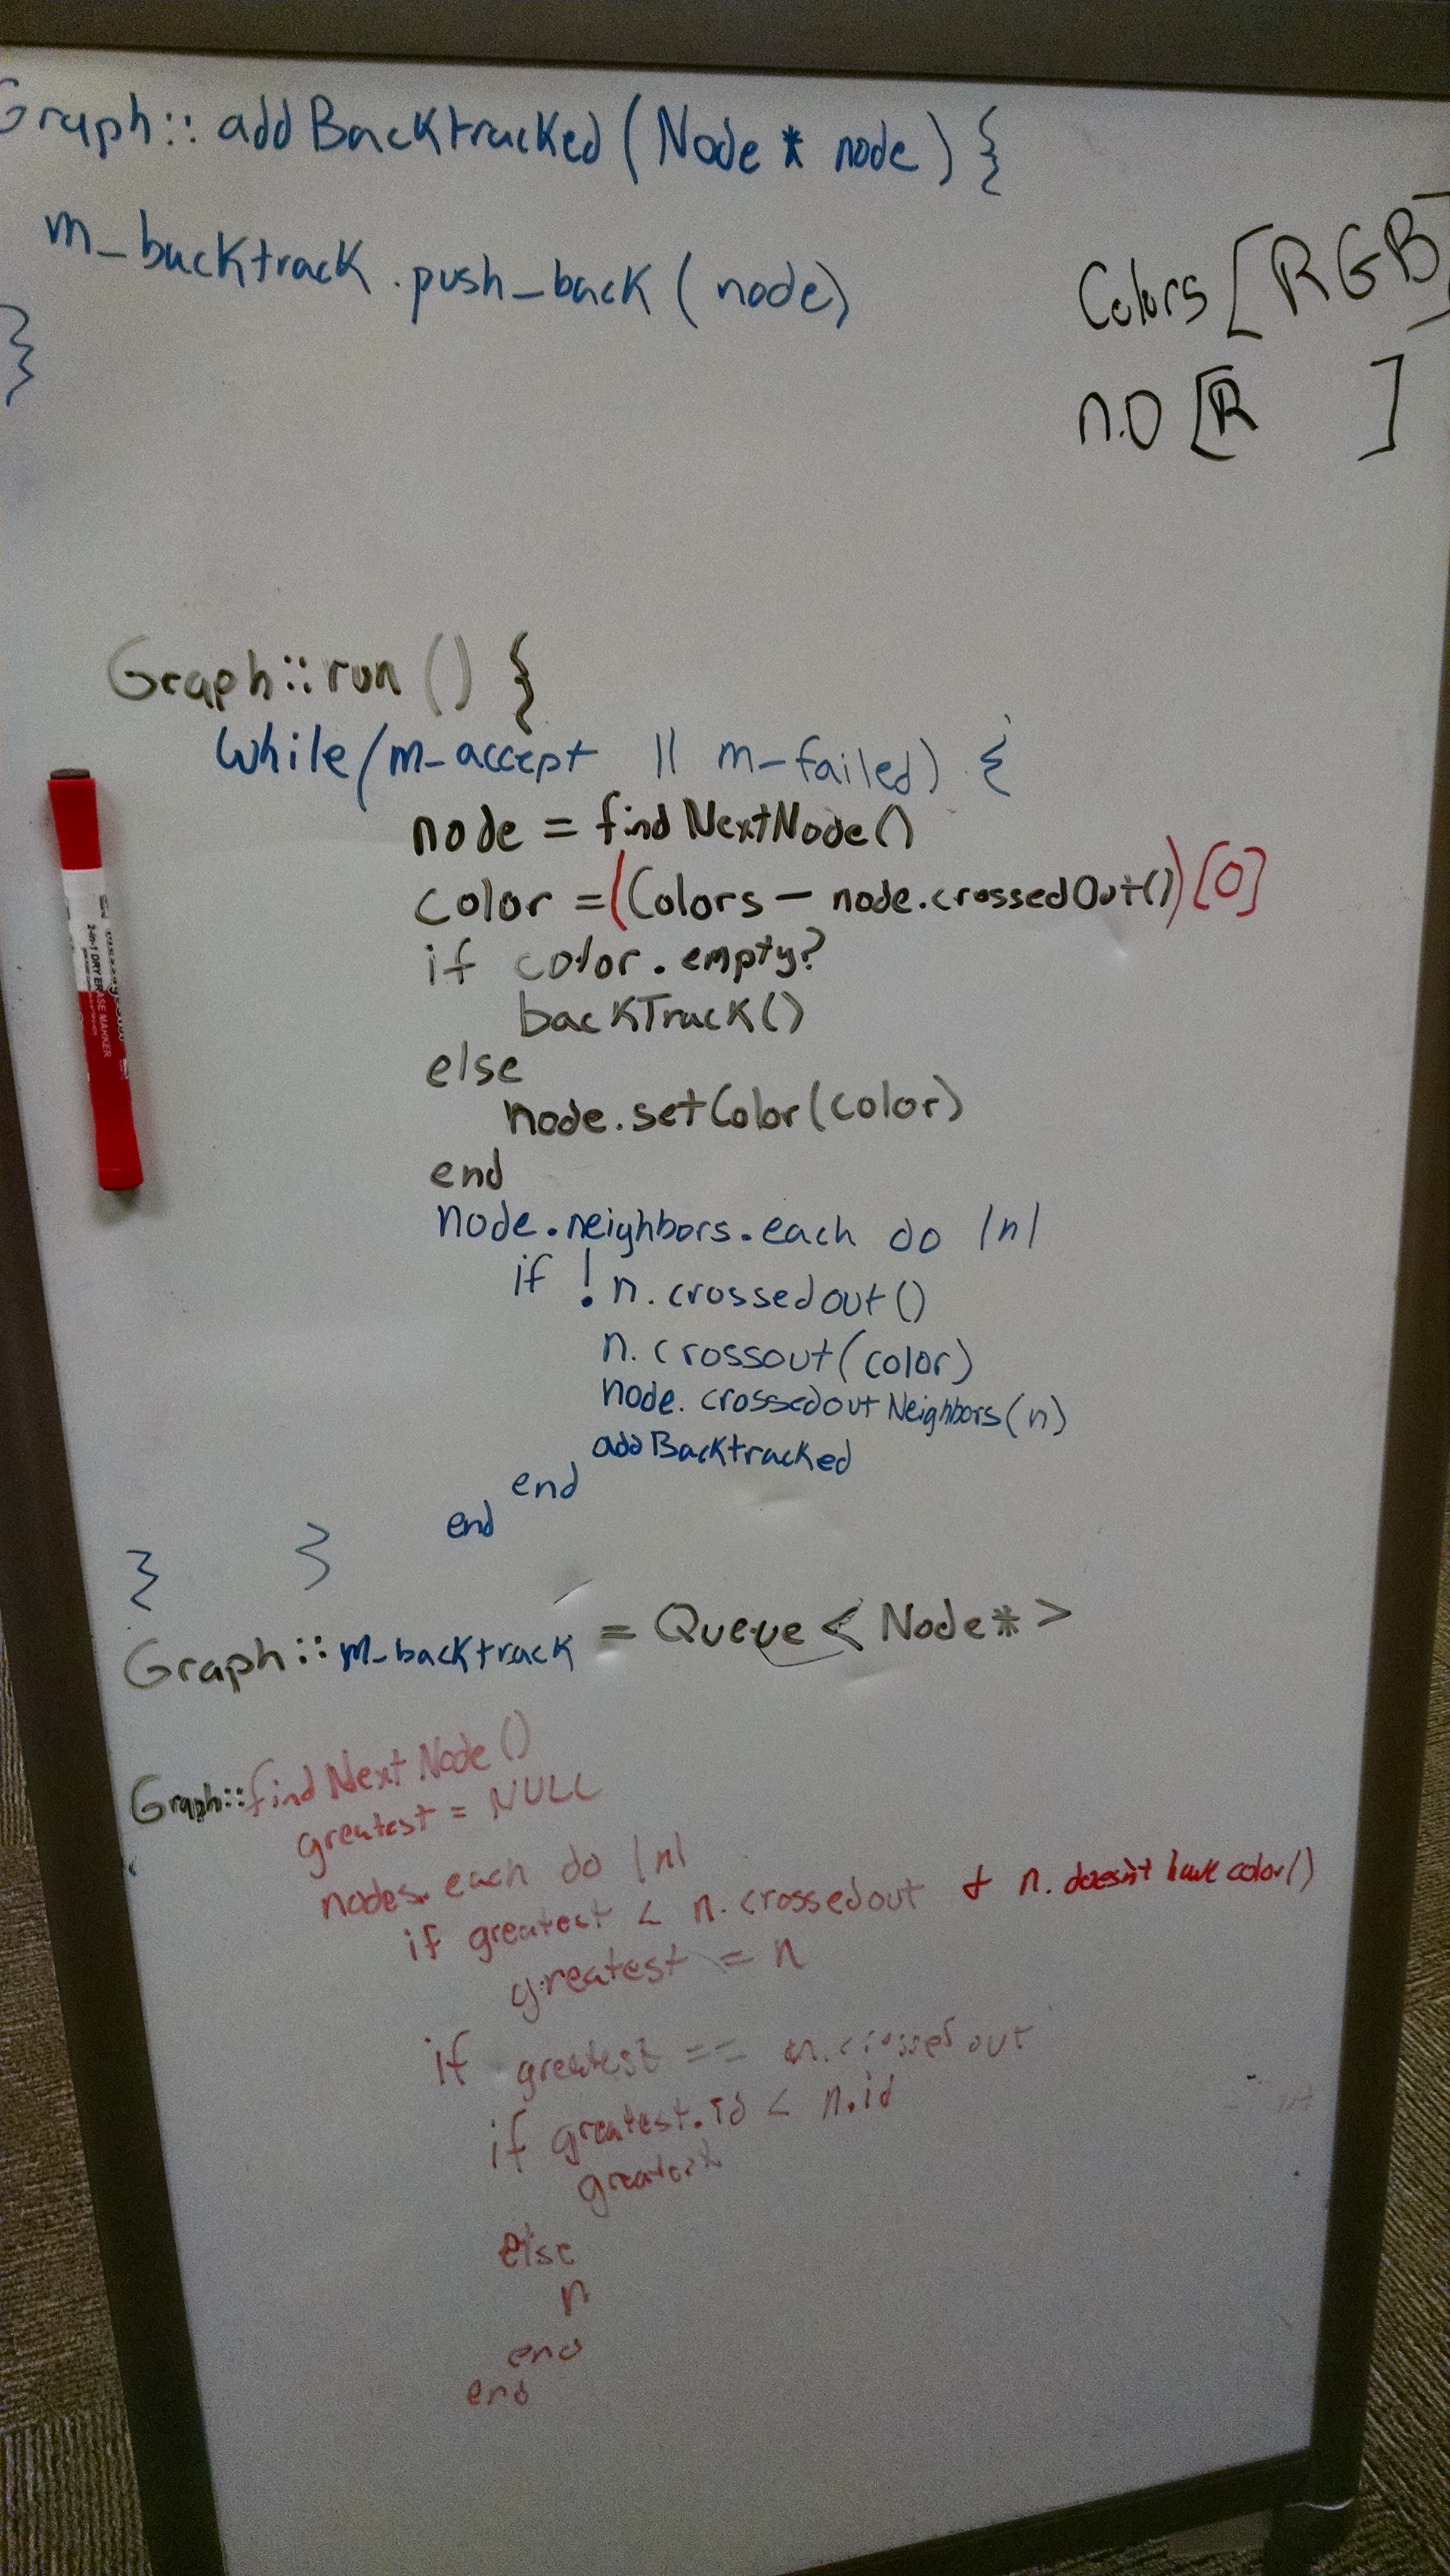 Graph:: addBacktracked (Node * node) {
m_backtrack.push_back (node)
}
Colors [RGB]
n.O [R ]
Graph::run () {
while(m_accept || m_failed) {
node = findNextNode()
color = (Colors - node.crossedOut())[0]
if color.empty?
backTrack()
else
node.setColor(color)
end
node.neighbors.each do |n|
if !n.crossedout()
n.crossout(color)
node.crossedoutNeighbors(n)
addBacktracked
end
end
}
}
Graph::m_backtrack = Queue < Node* >
Graph::findNextNode()
greatest = NULL
nodes.each do |n|
if greatest < n.crossedout & n.doesn't have color()
greatest = n
if greatest == n.crossedout
if greatest.id < n.id
greatest
else
n
end
end
2-in-1 DRY ERASE MARKER